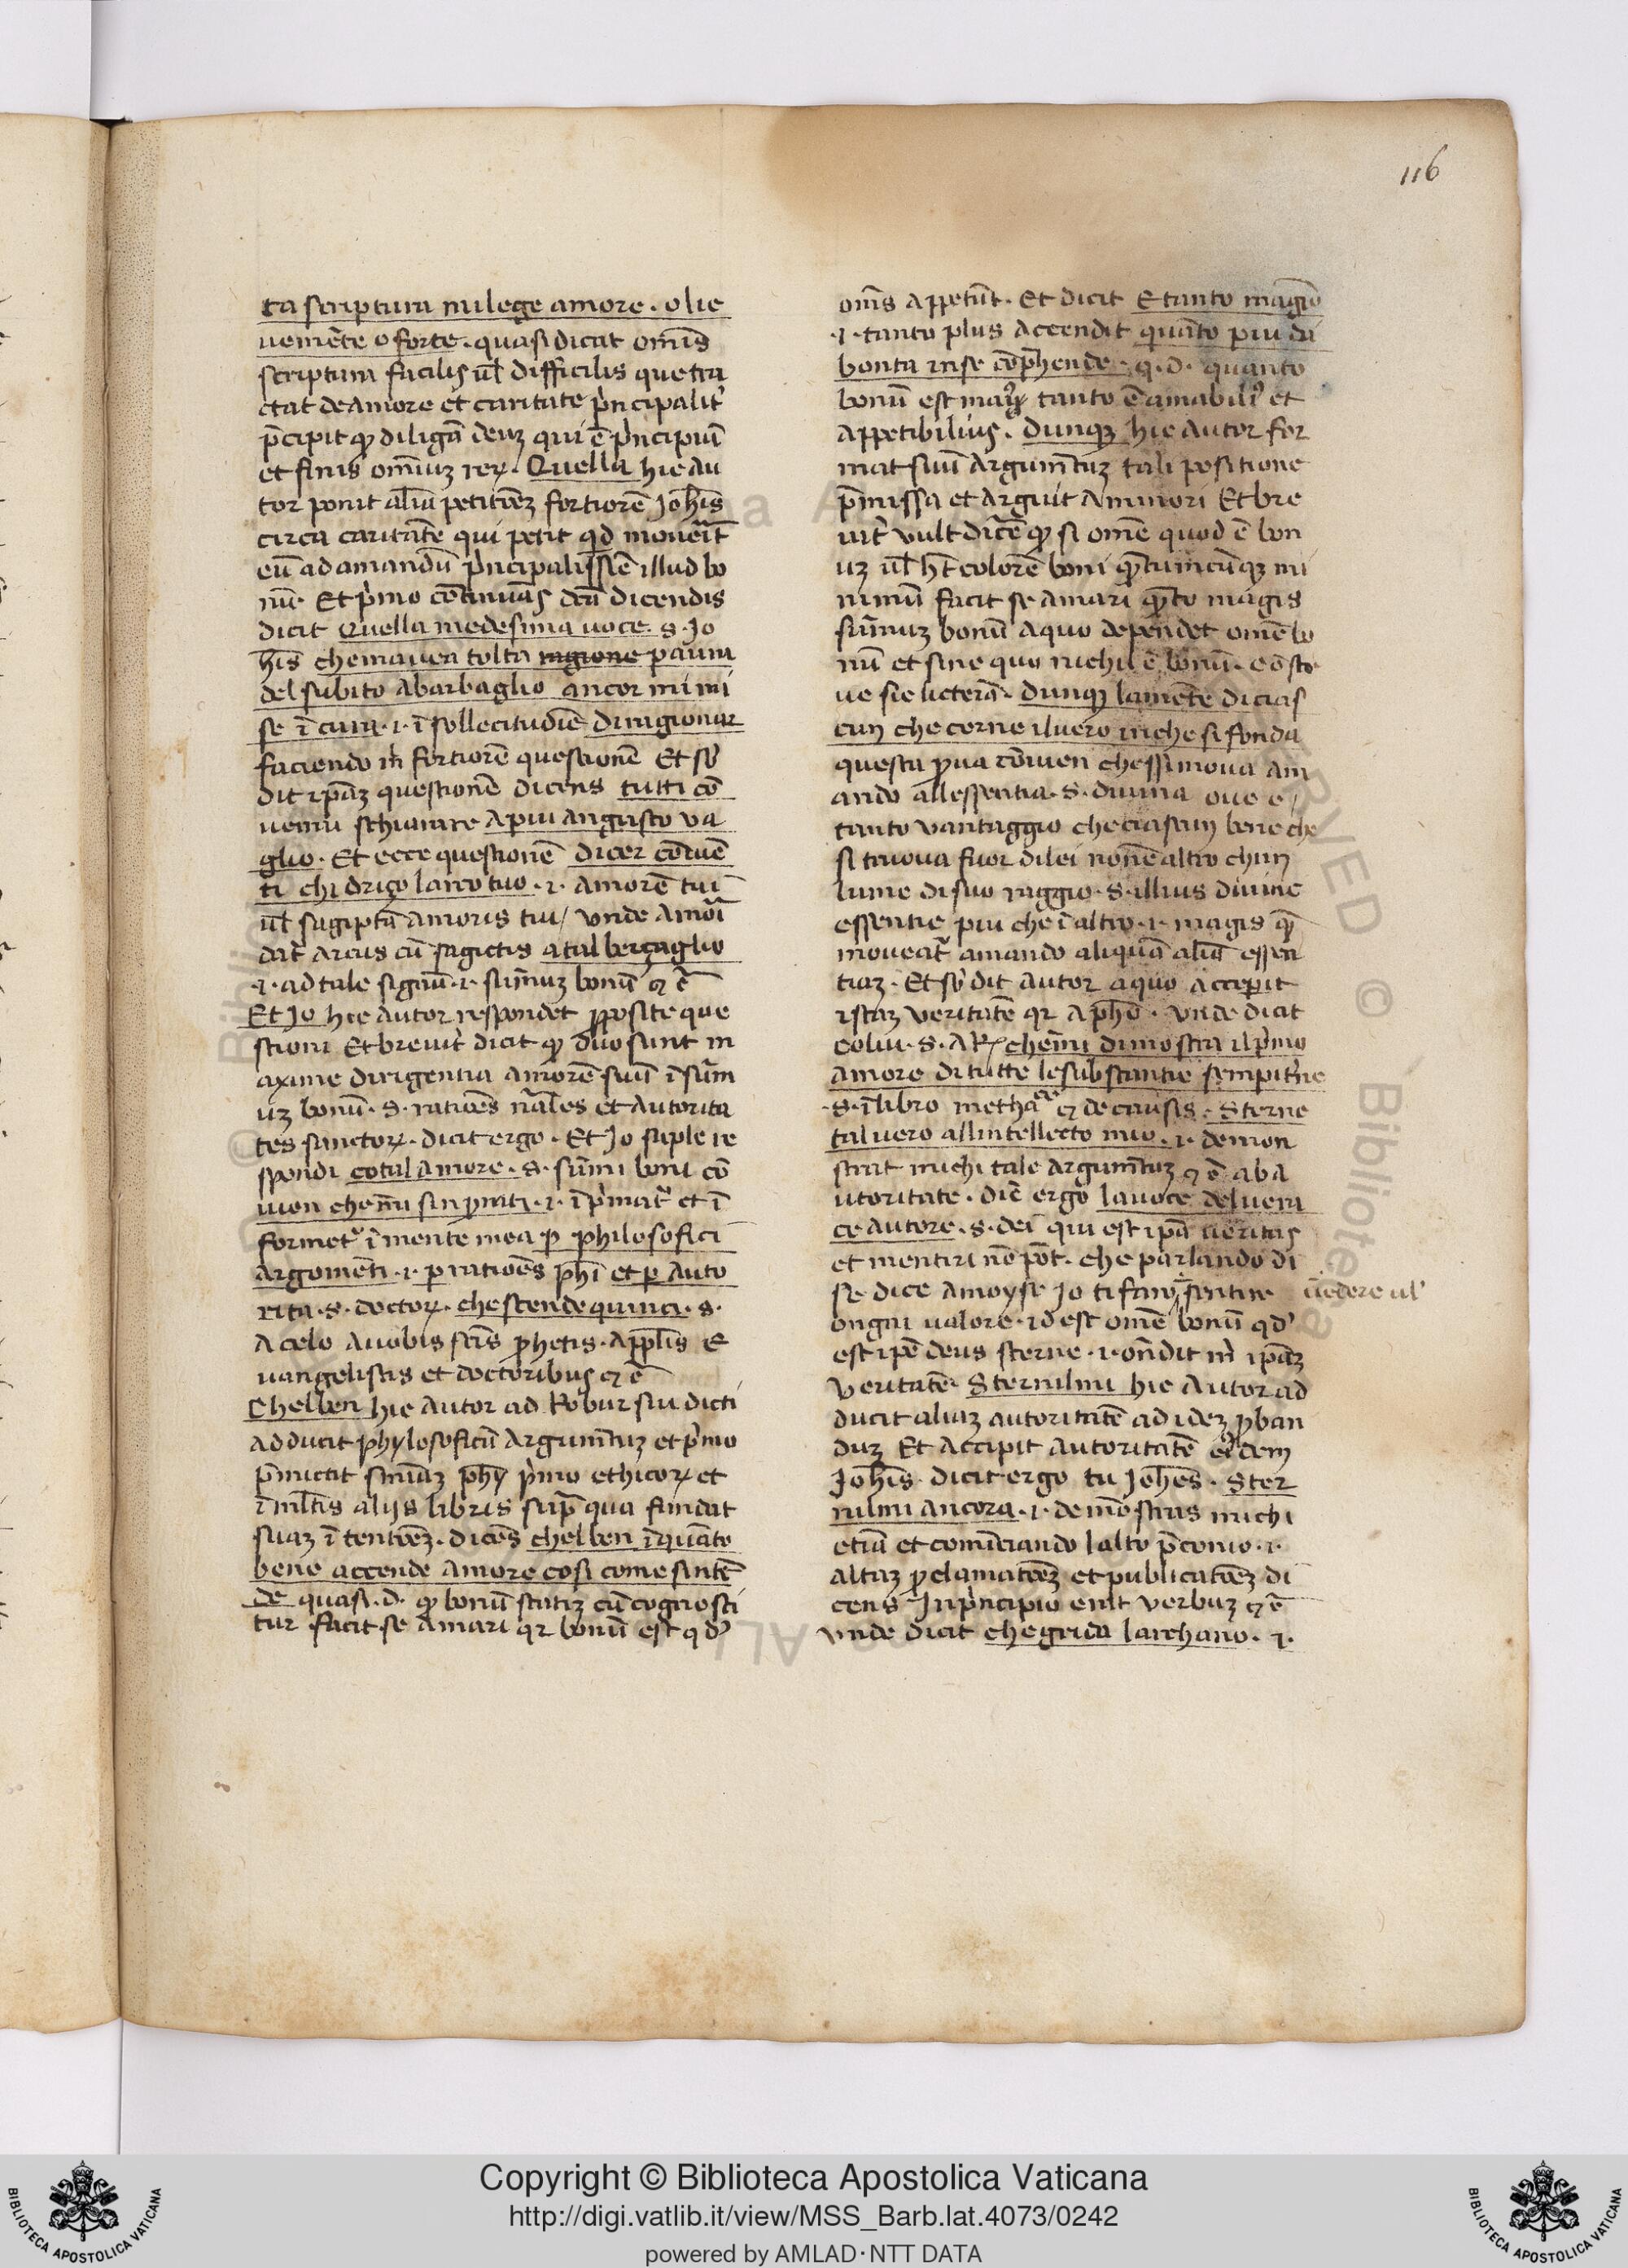 116
ta scriptura mi lege amore · o lie
vemẽte o forte · quasi dicat omĩs
scriptura facilis ul̃ difficilis que tra
ctat de amore et caritate prĩcipalit̾
p̃cipit qđ diligã deuʒ qui ẽ prĩcipiũ
et finis omĩuʒ reꝝ · Quella hic au
tor ponit aliã petitõeʒ fortiorẽ Johĩs
circa caritatẽ qui petit qđ moveãt
eũ ad amandũ prĩcipalissiẽ illud bo
nũ · Et prĩmo cõtinuãs dc̃a dicendis
dicit Quella medesima voce · s · Jo
hĩs che mavea tolta ragione paura
del subito abarbaglio ancor mi mi
se ĩ cura · i · ĩ sollecitudiẽ di ragionar
faciendo m̃ fortiorẽ questionẽ Et sƀ
dit ip̃aʒ questionẽ dicens tutti cõ
venni schiarare a piu angusto va
glio · Et ecce questionẽ dicer cõviẽ
ti chi driço larco tuo · i · amorẽ tuũ
ul̃ sagiptã amoris tui / Unde amoĩ
dat̾ arcus cũ sagictis a tal berçaglio
· i · ad tale signũ · i · sum̃uʒ bonũ ⁊ c̃
Et Jo hic autor respondet ꝓposite que
stioni Et brevit̾ dicit qđ duo sunt m
axime dirigentia amorẽ suũ ĩ sum̃
uʒ bonũ · s · ratiões nãles et autorita
tes sanctoꝝ · dicit ergo · Et Jo suple re
spondi cotal amore · s · sum̃i boni cõ
vien che ĩ mi sinpronti · i · ĩprimat̾ et ĩ
formet̾ ĩ mente mea ꝑ philosofici
argomẽti · i · ꝑ ratiões ph̃i et ꝑ auto
rita · s · doctoꝝ · che scende quinci · s ·
a celo a vobis sc̃is ꝓphetis · apl̃is e
vangelistis et doctoribus ⁊ c̃
Chel ben hic autor ad robur sui dicti
adducit phylosoficũ argum̃tuʒ et p̾mo
p̃mictit sñiaʒ phỹ p̾mo ethicoꝝ et
ĩ mlt̃is alijs libris sup̃ qua fundat
suaʒ ĩtentõeʒ · dicẽs chel ben ĩ quãto
bene accende amore cosi come sintẽ
de quasi · d · qđ bonũ statiʒ cũ cognosci
tur facit se amari qr bonũ est qđ
omĩs appetũt · Et dicit E tanto magiõ
· i · tanto plus accendit quãto piu di
bonta in se cõp̃hende · q · d · quanto
bonũ est maiꝰ tanto ẽ amabiliꝰ et
appetibilius · Dunqʒ hic autor for
mat suũ argum̃tuʒ tali positione
p̃missa et arguit a minori Et bre
vit̾ vult dicẽ qđ si omẽ quod ẽ bon
uʒ ul̃ hẽt colorẽ boni qñtumcũqʒ mi
nimũ facit se amari qñto magis
sum̃uʒ bonũ a quo dependet omẽ bo
nũ et sine quo nichil ẽ bonũ · cõstr
ue sic licterã · Dunqʒ la mẽte di cias
cun che cerne il vero in che si fonda
questa prova cõvien chessi mova am
ando all essentia · s · divina ove e /
tanto vantaggio che ciascun bene che
si truova fuor di lei non ẽ altro chun
lume di suo raggio · s · illius divine
essentie piu che ĩ altro · i · magis qñ
moveat̾ amando aliquã aliã essen
tiaʒ · Et sƀdit autor a quo accepit
istaʒ veritatẽ qr a ph̃o · Unde dicit
colui · s · Aꝝ che m̃i dimostra il p̾mo
amore di tutte le substantie sempit̾ne
· s · ĩ libro metha ⁊ de causis · Sterne
tal vero all intellecto mio · i · demon
strat michi tale argum̃tuʒ ⁊ c̃ ab a
utoritate · dic̃ ergo la voce del vera
ce autore · s · dei qui est ip̃a veritas
et mentiri nõ põt · che parlando di
se dice a moyse Jo ti faro sentire vedere ul̾
ongni valore · id est omẽ bonũ qđ
est ip̃e deus sterne · i · oñdit m̃ ip̃aʒ
veritatẽ Sternilmi hic autor ad
ducit aliaʒ autoritatẽ ad ideʒ ꝓban
duʒ Et accipit autoritatẽ eiusdem
Johĩs · dicit ergo tu Johẽs · Ster
nilmi ancora · i · demõstras michi
etiã et comĩciando lalto p̃conio · i ·
altaʒ ꝓclamatõeʒ et publicatõeʒ di
cens In prĩcipio erat verbuʒ ⁊ c̃
Unde dicit che grida larchano · i ·
Copyright © Biblioteca Apostolica Vaticana
http://digi.vatlib.it/view/MSS_Barb.lat.4073/0242
powered by AMLAD·NTT DATA
BIBLIOTECA APOSTOLICA VATICANA
BIBLIOTECA APOSTOLICA VATICANA